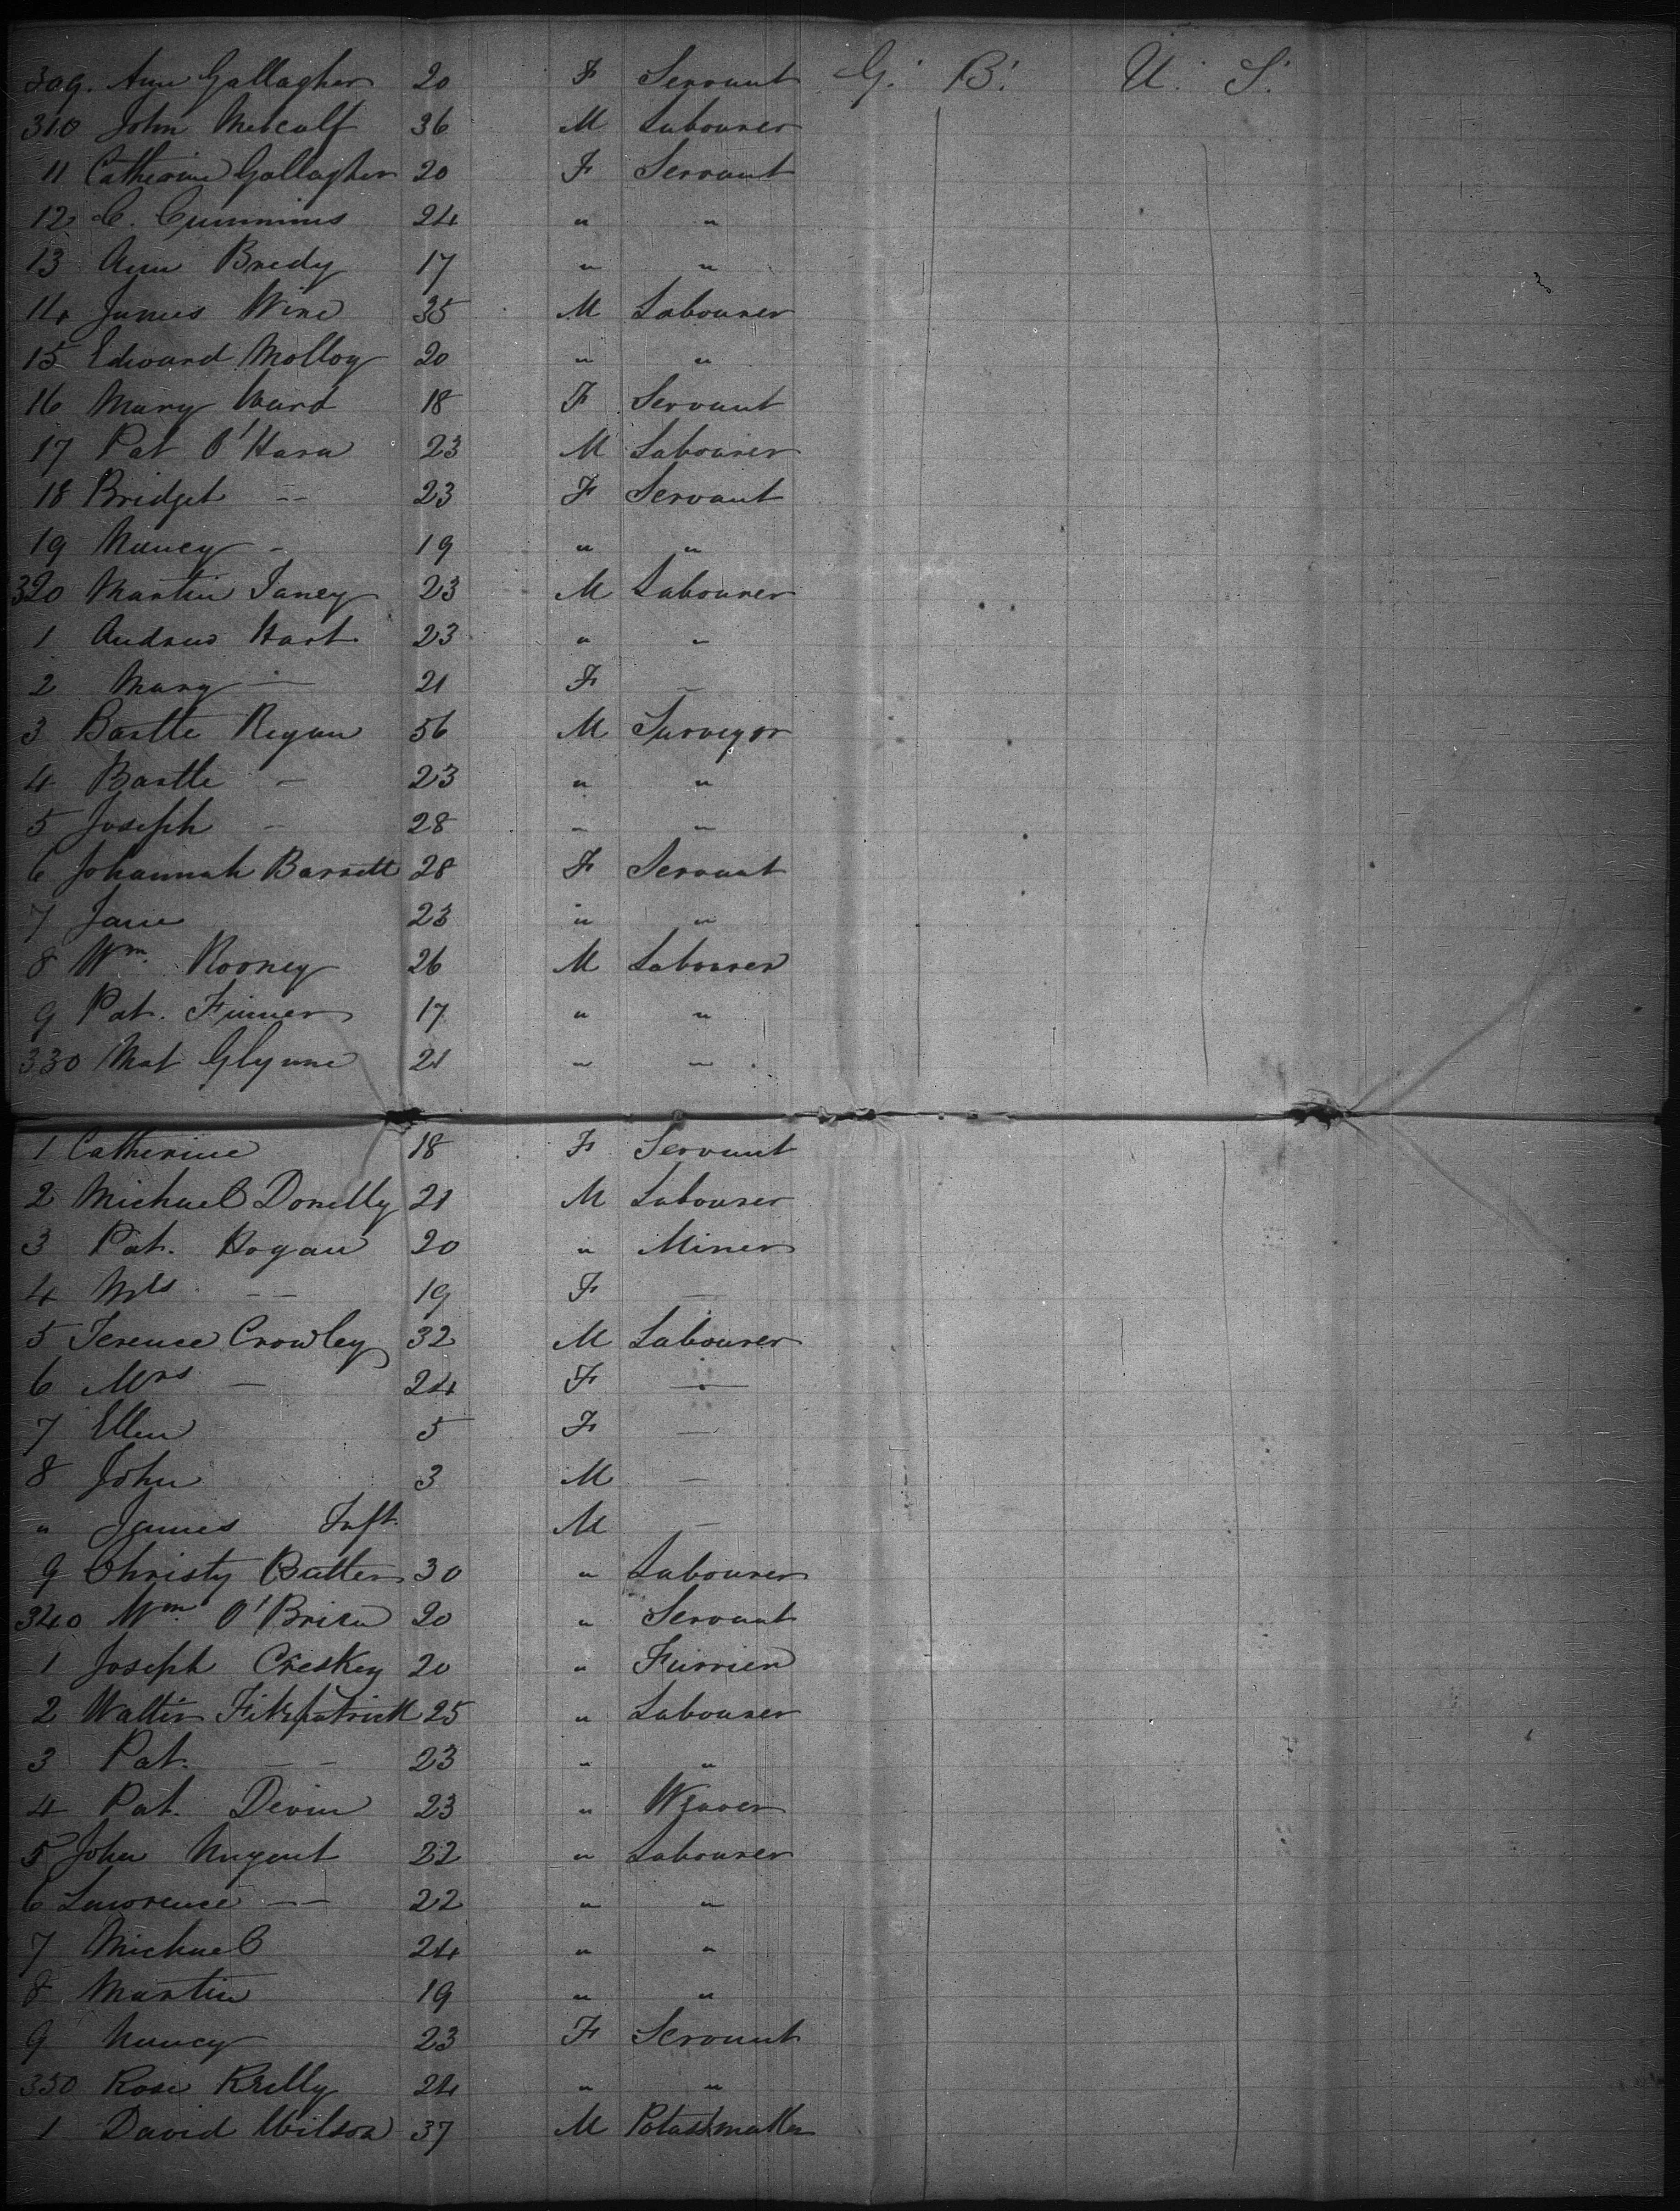 309. Ann Gallagher 20 F Servant G. B. U. S.
310 John Metcalf 36 M Labourer
11 Catherine Gallagher 20 F Servant
12 C. Cummins 24 " "
13 Ann Bredy 17 " "
14 James Wine 35 M Labourer
15 Edward Molloy 20 " "
16 Mary Ward 18 F Servant
17 Pat O'Hara 23 M Labourer
18 Bridget -- 23 F Servant
19 Nancy - 19 " "
320 Martin Janey 23 M Labourer
1 Andrew Hart 23 " "
2 Mary — 21 F —
3 Bartle Regan 56 M Surveyor
4 Bartle - 23 " "
5 Joseph - 28 " "
6 Johannah Barrett 28 F Servant
7 Jane 23 " "
8 Wm. Rooney 26 M Labourer
9 Pat. Finner 17 " "
330 Mat Glynne 21 " "
1 Catherine 18 F Servant
2 Michael Donelly 21 M Labourer
3 Pat. Hogan 20 " Miner
4 Mrs. -- 19 F —
5 Terence Crowley 32 M Labourer
6 Mrs — 24 F —
7 Ellen 5 F —
8 John 3 M —
" James Inft. M —
9 Christy Butler 30 " Labourer
340 Wm. O'Brien 20 " Servant
1 Joseph Creskey 20 " Furrier
2 Walter Fitzpatrick 25 " Labourer
3 Pat. -- 23 " "
4 Pat. Devin 23 " Weaver
5 John Nugent 22 " Labourer
6 Lawrence -- 22 " "
7 Michael 24 " "
8 Martin 19 " "
9 Nancy 23 F Servant
350 Rose Kelly 24 " "
1 David Wilson 37 M Potashmaker